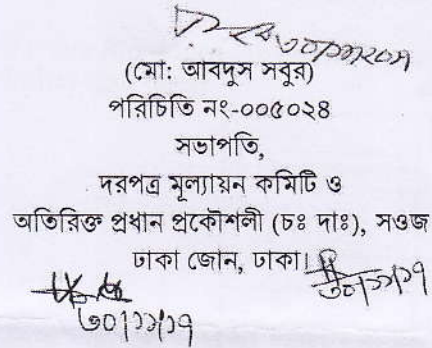 ৩০/১১/২০১৭
(মো: আবদুস সবুর)
পরিচিতি নং-০০৫০২৪
সভাপতি,
দরপত্র মূল্যায়ন কমিটি ও
অতিরিক্ত প্রধান প্রকৌশলী (চঃ দাঃ), সওজ
ঢাকা জোন, ঢাকা।
৩০/১১/১৭
৩০/১১/১৭